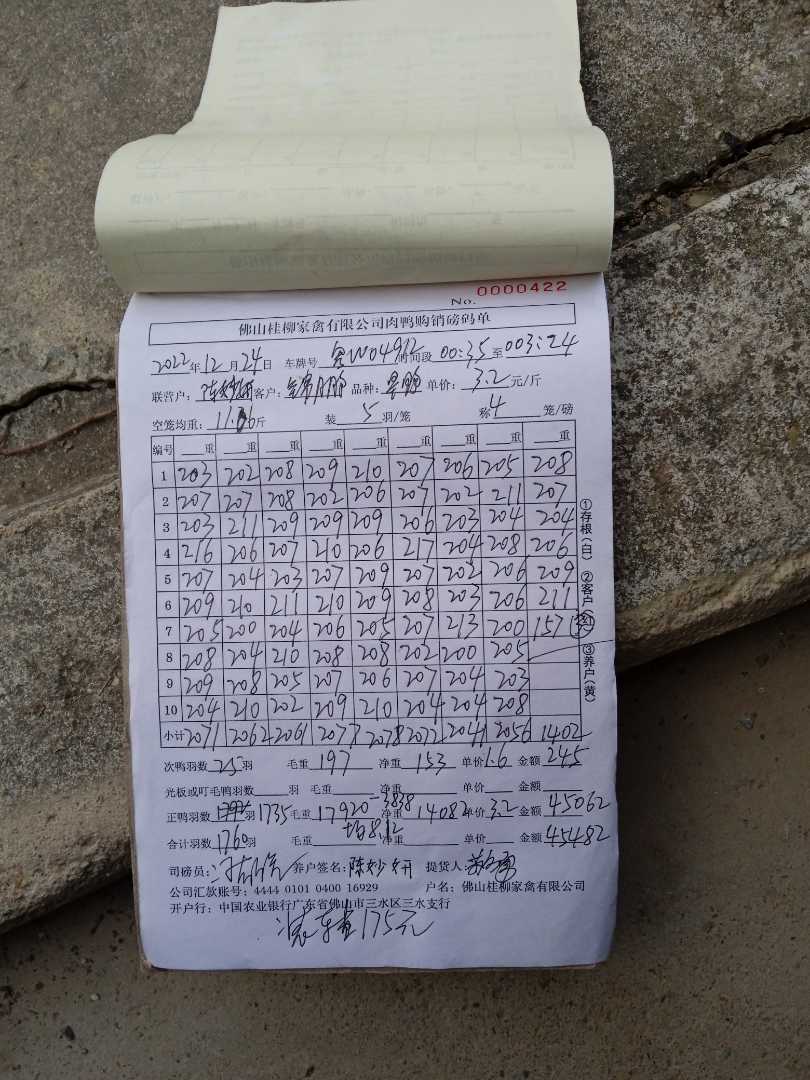 No. 0000422
佛山桂柳家禽有限公司肉鸭购销磅码单
2022年12月24日 车牌号 W04912 时间段 00:35至003:24
联营户: 客户: 品种: 单价: 3.2元/斤
空笼均重: 斤 装5羽/笼 称4笼/磅
编号 重 重 重 重 重 重 重 重 重
1 203 202 208 209 210 207 206 205 208
2 207 207 208 202 206 207 202 211 207
3 203 211 209 209 209 206 203 204 204
4 216 206 207 210 206 217 204 208 206
5 207 204 203 207 209 207 202 206 209
6 209 210 211 210 209 208 203 206 211
7 205 200 204 206 205 207 213 200 157
8 208 204 210 208 208 202 200 205
9 209 208 205 207 206 207 204 203
10 204 210 202 209 210 204 204 208
小计 2071 2062 2061 2077 2078 2072 2041 2056 1402
①存根(白) ②客户(红) ③养户(黄)
次鸭羽数25羽 毛重197 净重153 单价1.6 金额245
光板或叮毛鸭羽数 羽 毛重 净重 单价 金额
-3838
正鸭羽数 1735 毛重17920 净重14082 单价3.2 金额45062
合计羽数1760羽 毛重 净重 单价 金额45482
司磅员: 养户签名:陈妙妍 提货人:
公司汇款账号: 4444 0101 0400 16929 户名: 佛山桂柳家禽有限公司
开户行: 中国农业银行广东省佛山市三水区三水支行
175元